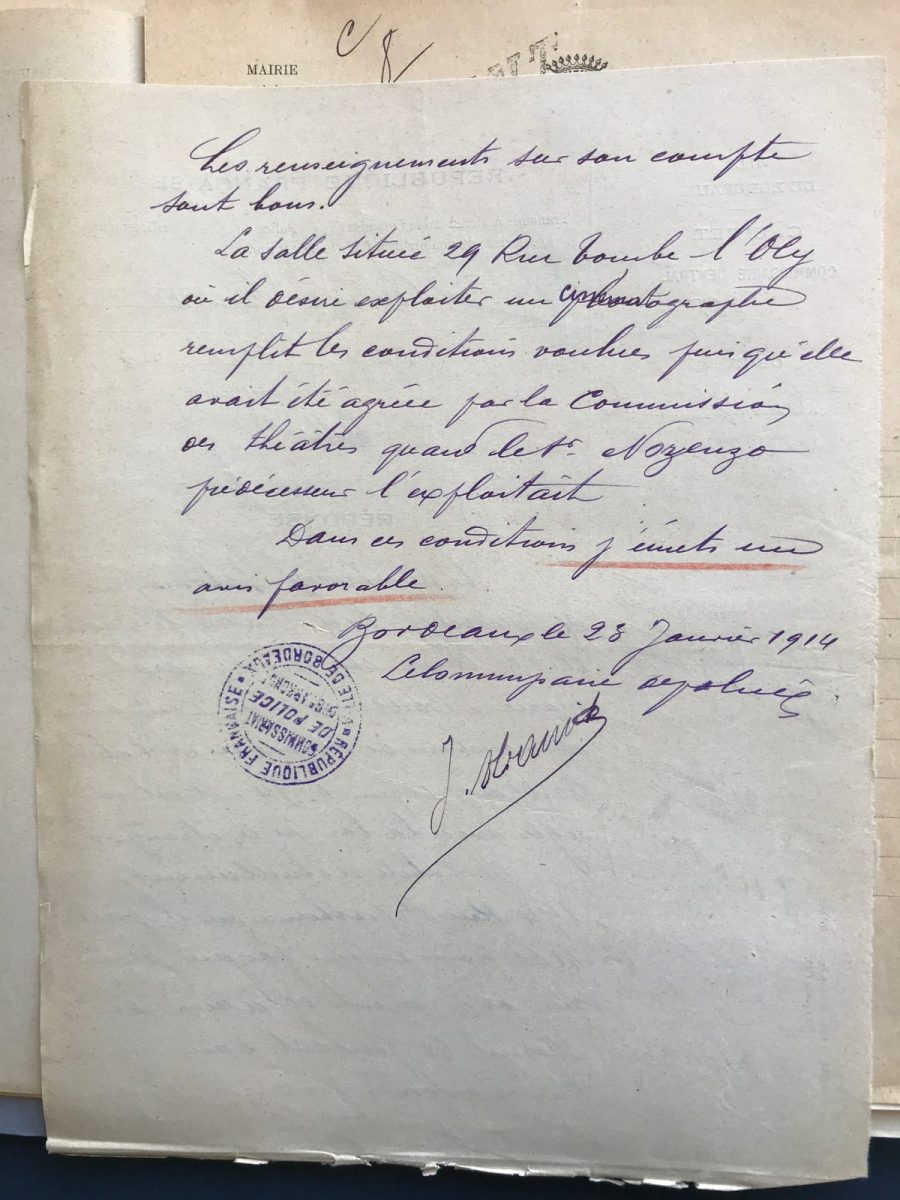 MAIRIE
Les renseignements sur son compte
sont bons.
La salle située 29 Rue Tombe l'Oly
où il désire exploiter un cinématographe
remplit les conditions voulues puisqu'elle
avait été agréée par la Commission
des théâtres quand le Sr. Nozenzo
prédécesseur l'exploitait
Dans ces conditions j'émets un
avis favorable.
Bordeaux le 23 Janvier 1914
Le Commissaire de police
J.
RÉPUBLIQUE FRANÇAISE
VILLE DE BORDEAUX
COMMISSARIAT
DE POLICE